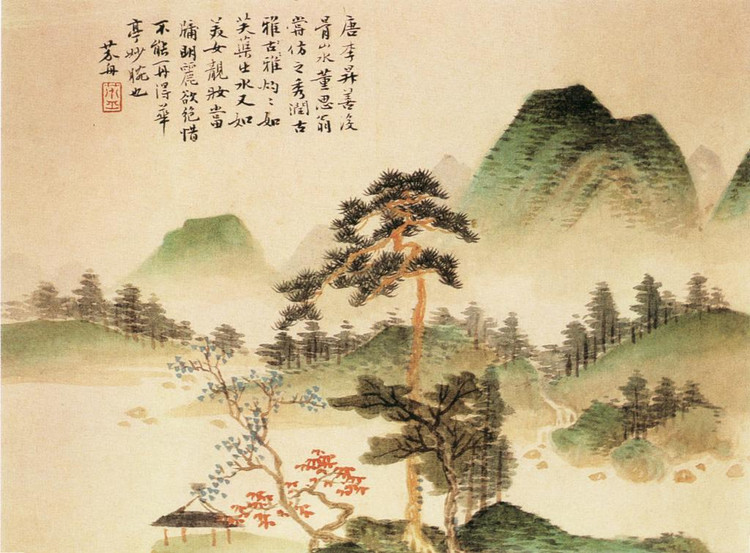 唐李昇善沒
骨山水董思翁
嘗仿之秀潤古
雅古雅灼〻如
芙蕖出水又如
美女靚妝當
牖明麗欲絕惜
不能再得華
亭妙腕也
芥舟